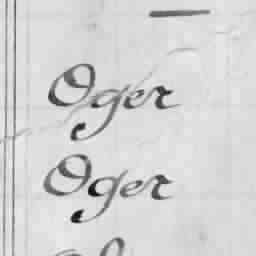 Oger
Oger